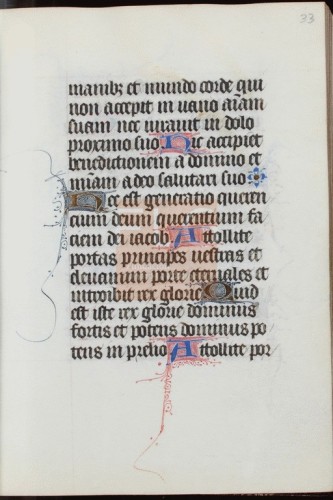 33
manibz et mundo corde qui
non accepit in uano aīam
suam nec iurauit in dolo
proximo suo Hic accipiet
benedictionem a domino et
mīam a deo salutari suo
Hec est generatio queren
cium deum querentium fa
ciem dei iacob Attollite
portas principes uestras et
eleuamini porte eternales et
introibit rex glorie Quid
est iste rex glorie dominus
fortis et potens dominus po
tens in prelio Attollite por